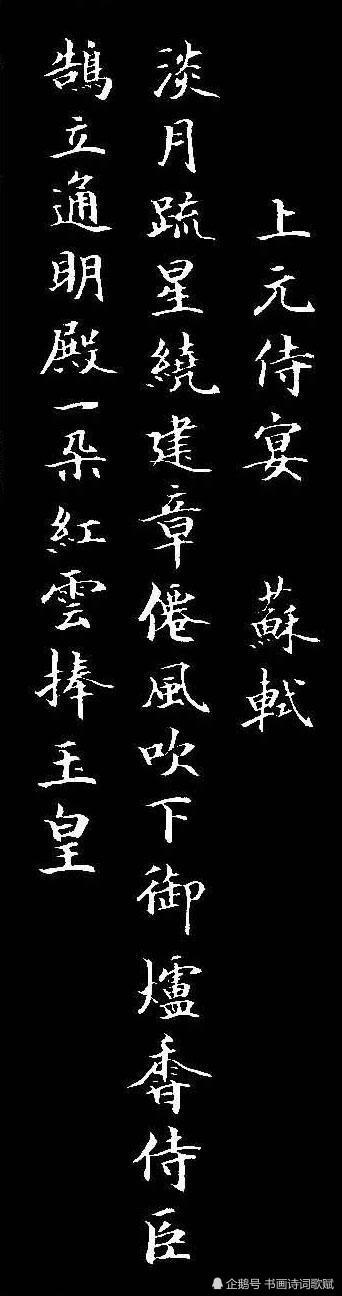 上元侍宴 蘇軾
淡月疏星繞建章僊風吹下御爐香侍臣
鵠立通明殿一朵紅雲捧玉皇
企鹅号 书画诗词歌赋